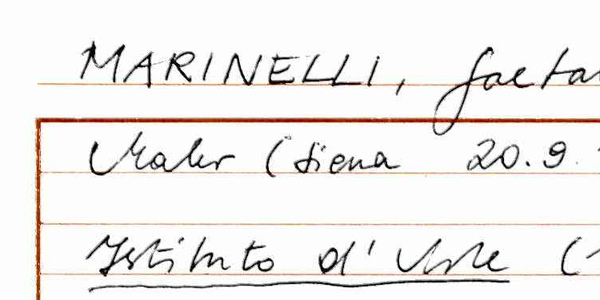 MARINELLI, Gaeta
Maler (Siena 20.9.
Istituto d'Arte (